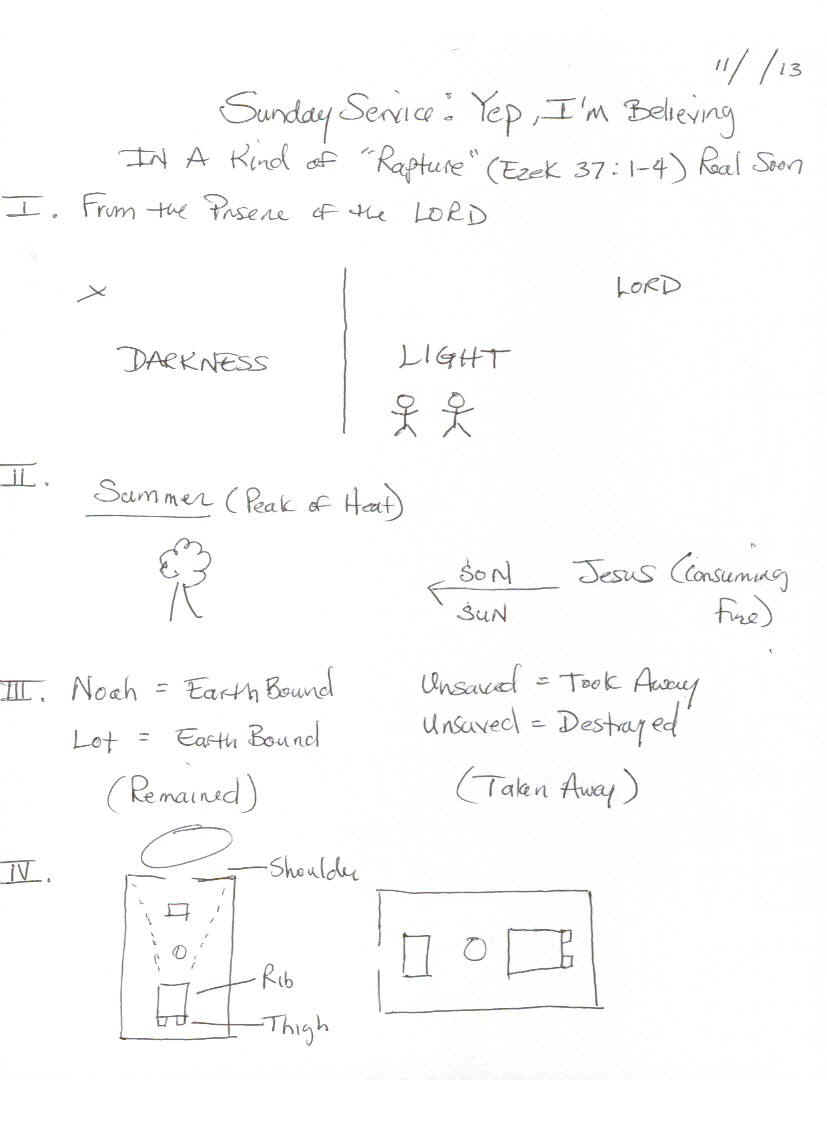 11/ /13
Sunday Service: Yep, I'm Believing
IN A Kind of "Rapture" (Ezek 37:1-4) Real Soon
I. From the Prsene of the LORD
X
LORD
DARKNESS
LIGHT
II.
Summer (Peak of Heat)
SON
SUN
Jesus (Consuming
Fire)
III. Noah = Earth Bound
Unsaved = Took Away
Lot = Earth Bound
Unsaved = Destroyed
(Remained)
(Taken Away)
IV.
Shoulder
Rib
Thigh